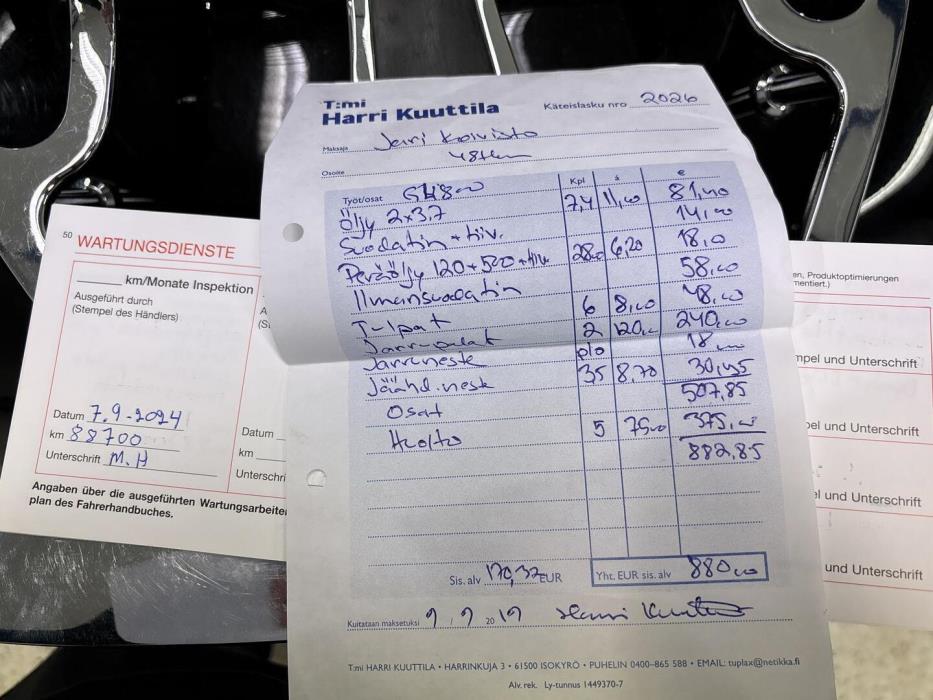 T:mi
Harri Kuuttila
Käteislasku nro 2026
Maksaja Jari Koivisto
48tkm
Osoite
Työt/osat GL1800 Kpl á €
Öljy 2x3,7 7,4 11,00 81,40
Suodatin + tiiv. 14,00
Peräöljy 120+500+tiiv 6,20 18,0
Ilmansuodatin 58,00
Tulpat 6 8,00 48,00
Jarrupalat 2 120,00 240,00
Jarruneste plo 18,00
Jäähd.neste 3,5 8,70 30,45
Osat 507,85
Huolto 5 75,00 375,00
882,85
Sis. alv 170,32 EUR
Yht. EUR sis. alv 880,00
Kuitataan maksetuksi 9.9 2019 Harri Kuuttila
T:mi HARRI KUUTTILA • HARRINKUJA 3 • 61500 ISOKYRÖ • PUHELIN 0400-865 588 • EMAIL: tuplax@netikka.fi
Alv. rek. Ly-tunnus 1449370-7
50 WARTUNGSDIENSTE
km/Monate Inspektion
Ausgeführt durch
(Stempel des Händlers)
Datum 7.9-2024
km 88700
Unterschrift M.H
A
(S
Datum
km
Unterschri
Angaben über die ausgeführten Wartungsarbeite
plan des Fahrerhandbuches.
en, Produktoptimierungen
mentiert.)
mpel und Unterschrift
pel und Unterschrift
el und Unterschrift
und Unterschrift